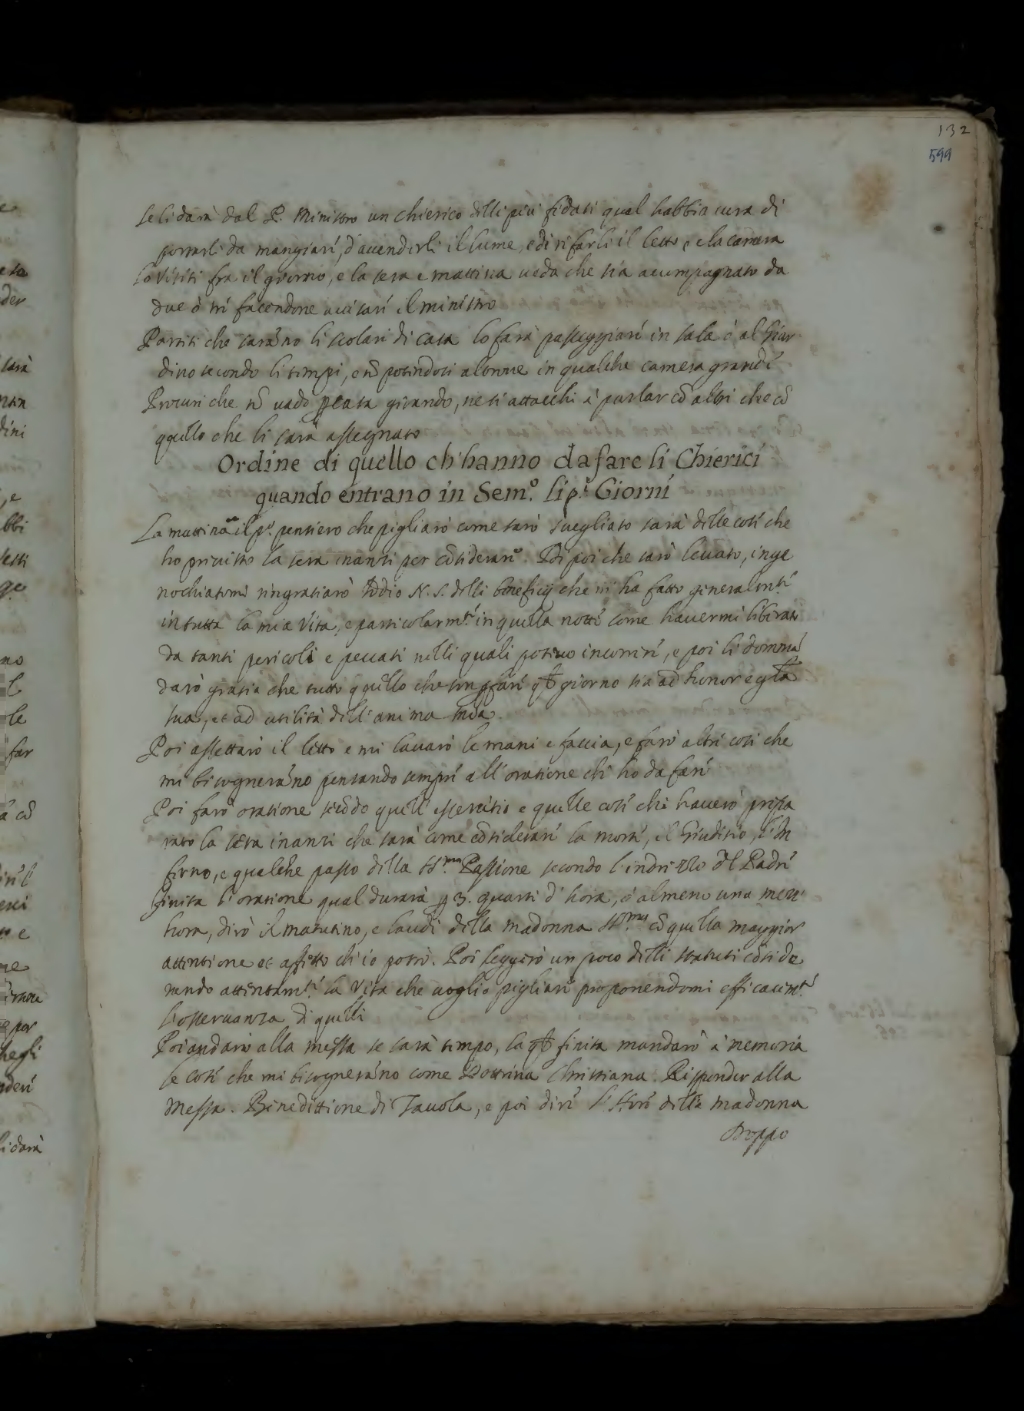 132
599
Se li darà dal P. Ministro un chierico delli più fidati qual habbia cura di
portarli da mangiare, d'accenderli il lume, e di rifarli il letto, e la camera
lo visiti fra il giorno, e la sera e mattina veda che sia acumpagnato da
due ò tri facendone avisari il ministro
Partiti che sarano li scolari di casa lo farà passeggiare in sala ò al Giar
dino secondo li tempi, e nõ potendosi alonne in qualche camera grandi
Procuri che nõ vado p casa girando, ne si attacchi à parlar cõ altri che cõ
quello che li sarà assegnato
Ordine di quello ch'hanno da fare li Chierici
quando entrano in Sem.º li p.ⁱ Giorni
La mattina il p.º pensiero che pigliarò come sarò svegliato sarà delle cosi che
ho previsto la sera inanti per cõsiderare. Di poi che sarò levato, inge
nochiatomi ringratiarò Iddio N. S. delli beneficij che mi ha fatto generalm.te
in tutta la mia vita, e particolarm.te in quella notte come havermi liberato
da tanti pericoli e peccati nelli quali potevo incorrere, e poi li domma
darò gratia che tutto quello che son p fare qsto giorno sia ad honor e gla
sua, et ad utilità dell'anima mia.
Poi assettarò il letto e mi lavarò le mani e faccia, e farò altri cosi che
mi bisognerano pensando sempri all'oratione chi ho da fari
Poi farò oratione secõdo quell'essercitio e quelle cosi chi haverò prepa
rato la sera inanti che sarà come cõsiderari la morte, il Giuditio, l'In
ferno, e qualche passo della SS.ma Passione secondo l'indrizzo del Padre
finita l'oratione qual durarà p 3. quarti d'hora, ò almeno una mezz'
hora, dirò il matutino, e laudi della madonna SS.ma cõ quella maggior
attentione et affetto ch'io potrò. Poi leggerò un poco delli statuti cõside
rando attentam.te la vita che voglio pigliari proponendomi efficacim.te
l'osservanza di quelli
Poi andarò alla messa se sarà tempo, la qle finita mandarò à memoria
le cosi che mi bisognerano come Dottrina Christiana. Rispondere alla
Messa. Benedittione di Tavola, e poi dirò l'Hore della madonna
Doppo